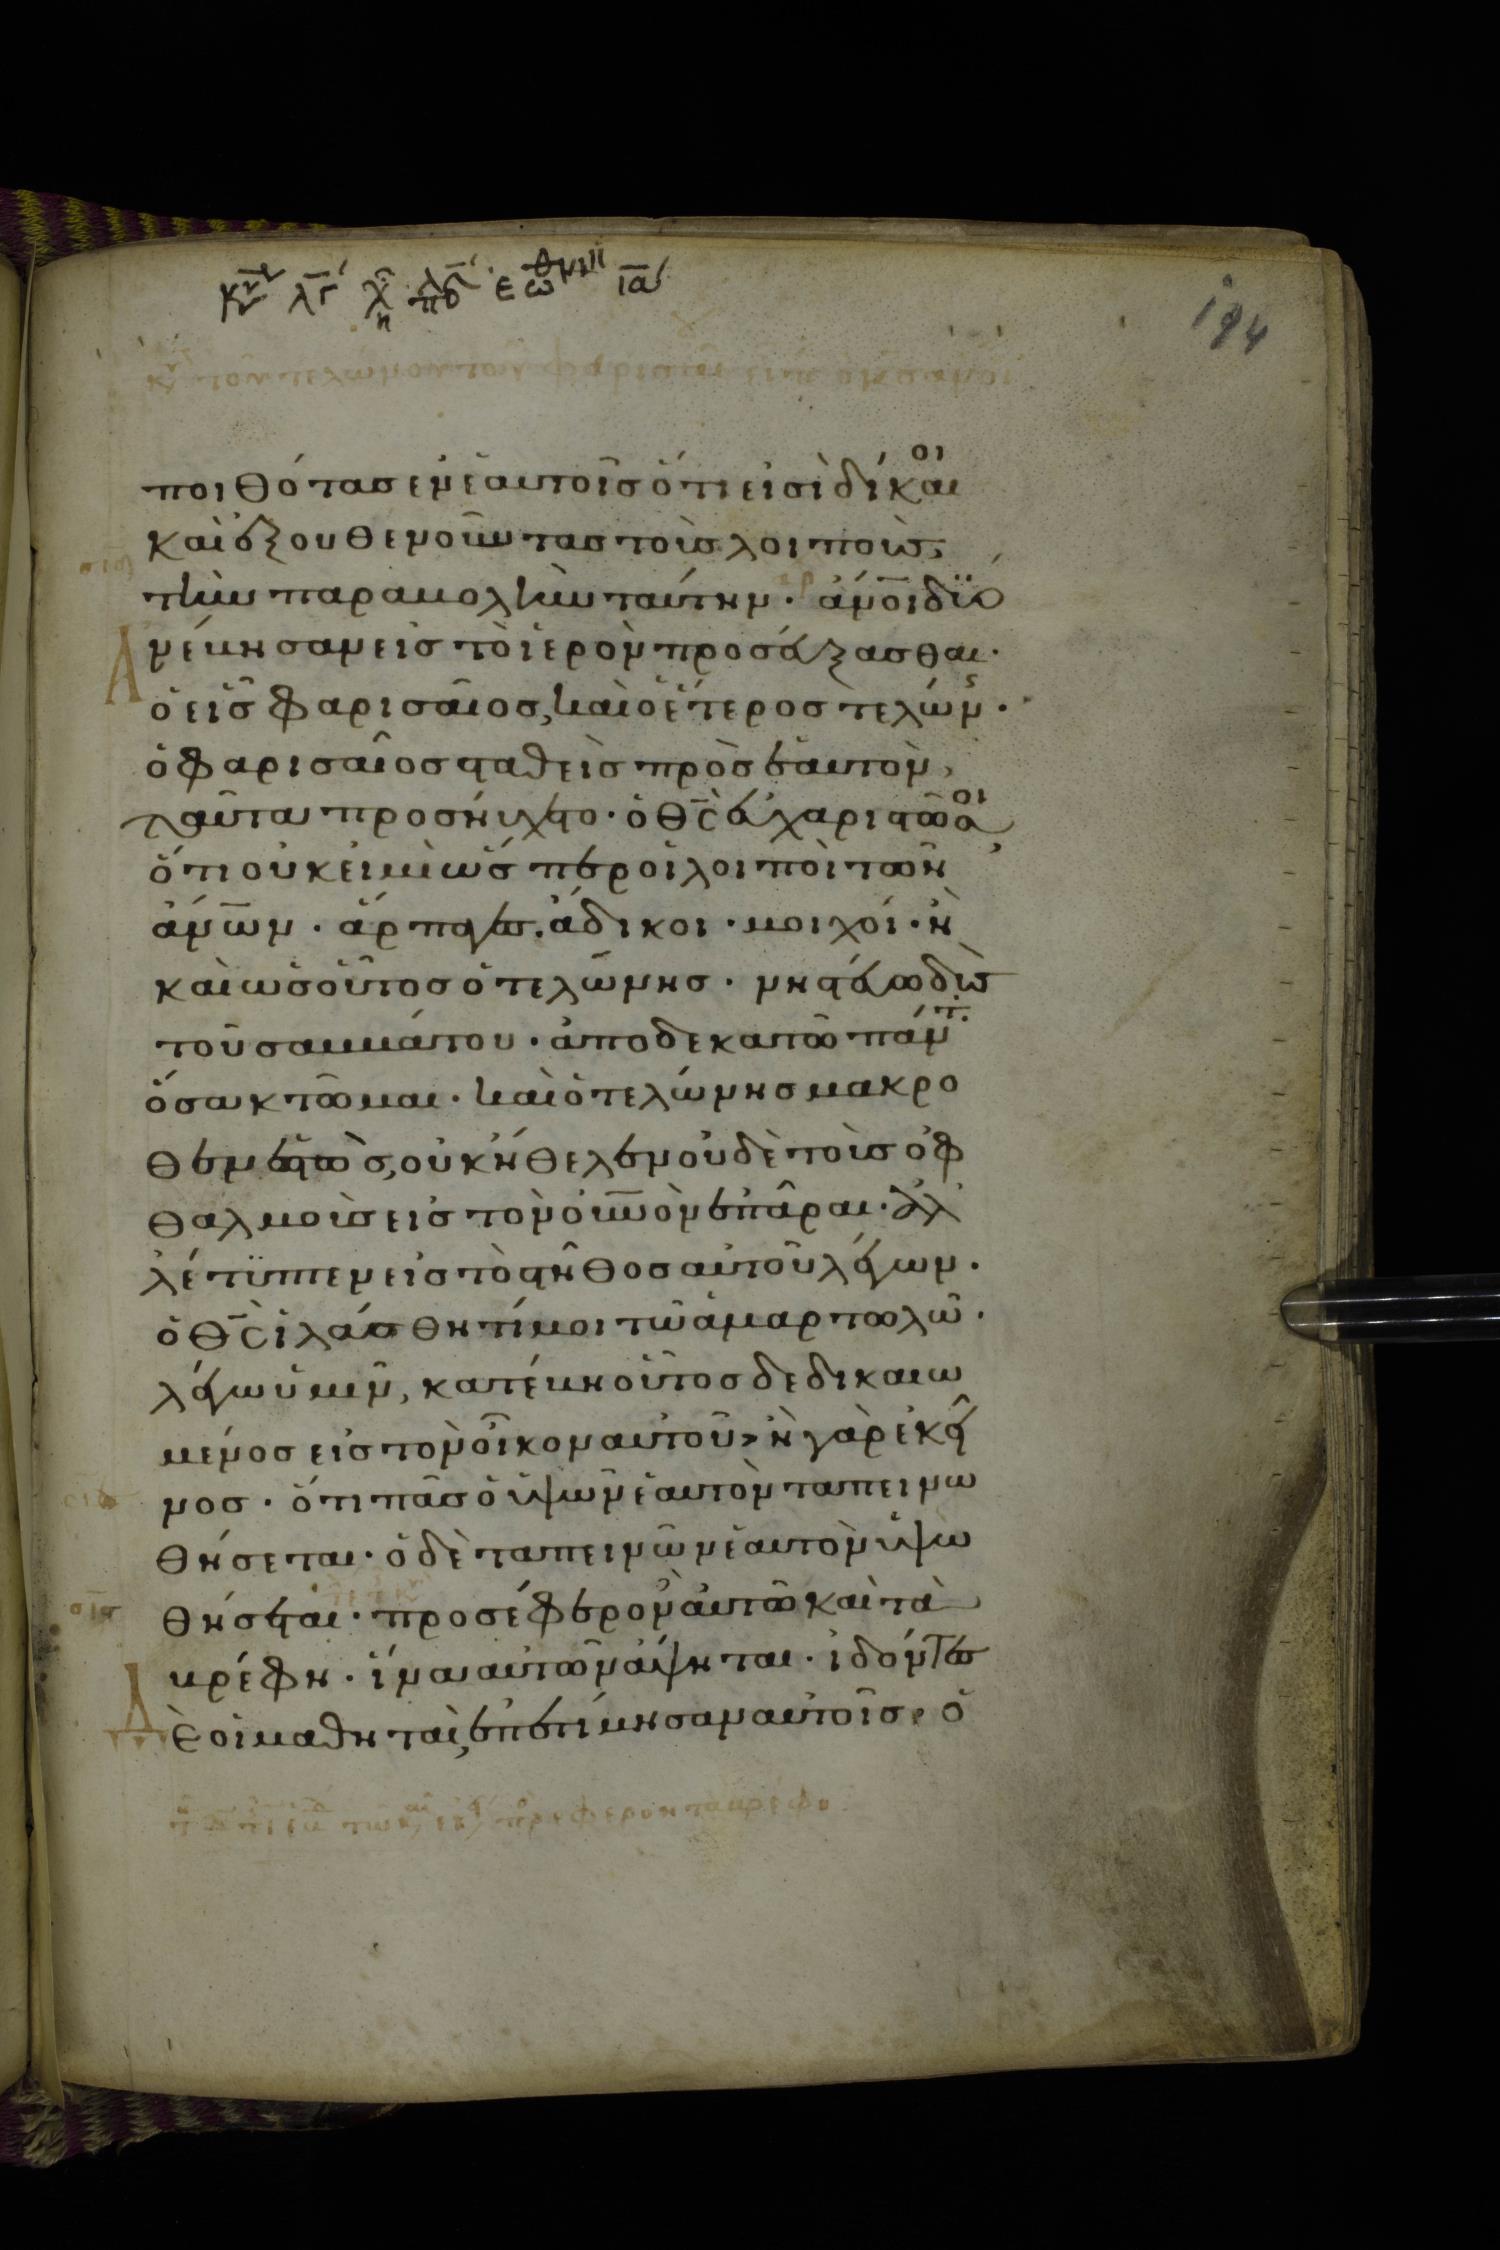 ποιθότας ἐν ἑαυτοῖς ὅτι εἰσὶ δίκαιοι
καὶ ἐξουθενοῦντας τοὺς λοιποὺς,
τὴν παραβολὴν ταύτην · ἄν̅οι δύο
ἀνέβησαν εἰς τὸ ἱερὸν προσεύξασθαι ·
ὁ εἷς φαρισαῖος, καὶ ὁ ἕτερος τελών ·
ὁ φαρισαῖος σταθεὶς πρὸς ἑαυτὸν,
ταῦτα προσηύχετο · ὁ θ̅ς̅ εὐχαριστῶ σοι
ὅτι οὐκ εἰμὶ ὥσπερ οἱ λοιποὶ τῶν
ἀν̅ων · ἅρπαγες. ἄδικοι · μοιχοί · ἢ
καὶ ὡς οὗτος ὁ τελώνης · νηστεύω δὶς
τοῦ σαββάτου · ἀποδεκατῶ πάντ
ὅσα κτῶμαι · καὶ ὁ τελώνης μακρο
θεν ἑστὼς, οὐκ ἤθελεν οὐδὲ τοὺς ὀφ
θαλμοὺς εἰς τὸν οὐ̅νὸν ἐπᾶραι · ἀλ
λ' ἔτυπτεν εἰς τὸ στῆθος αὐτοῦ λέγων ·
ὁ θ̅ς̅ ἱλάσθητί μοι τῶ ἁμαρτωλῶ ·
λέγω ὑμῖν, κατέβη οὗτος δεδικαιω
μένος εἰς τὸν οἶκον αὐτοῦ, ἢ γὰρ ἐκεῖ
νος · ὅτι πᾶς ὁ ὑψῶν ἑαυτὸν ταπεινω
θήσεται · ὁ δὲ ταπεινῶν ἑαυτὸν ὑψω
θήσεται · προσέφερον αὐτῶ καὶ τὰ
βρέφη · ἵνα αὐτῶν ἅψηται · ἰδόντες
δὲ οἱ μαθηταὶ, ἐπετίμησαν αὐτοῖς · ὁ